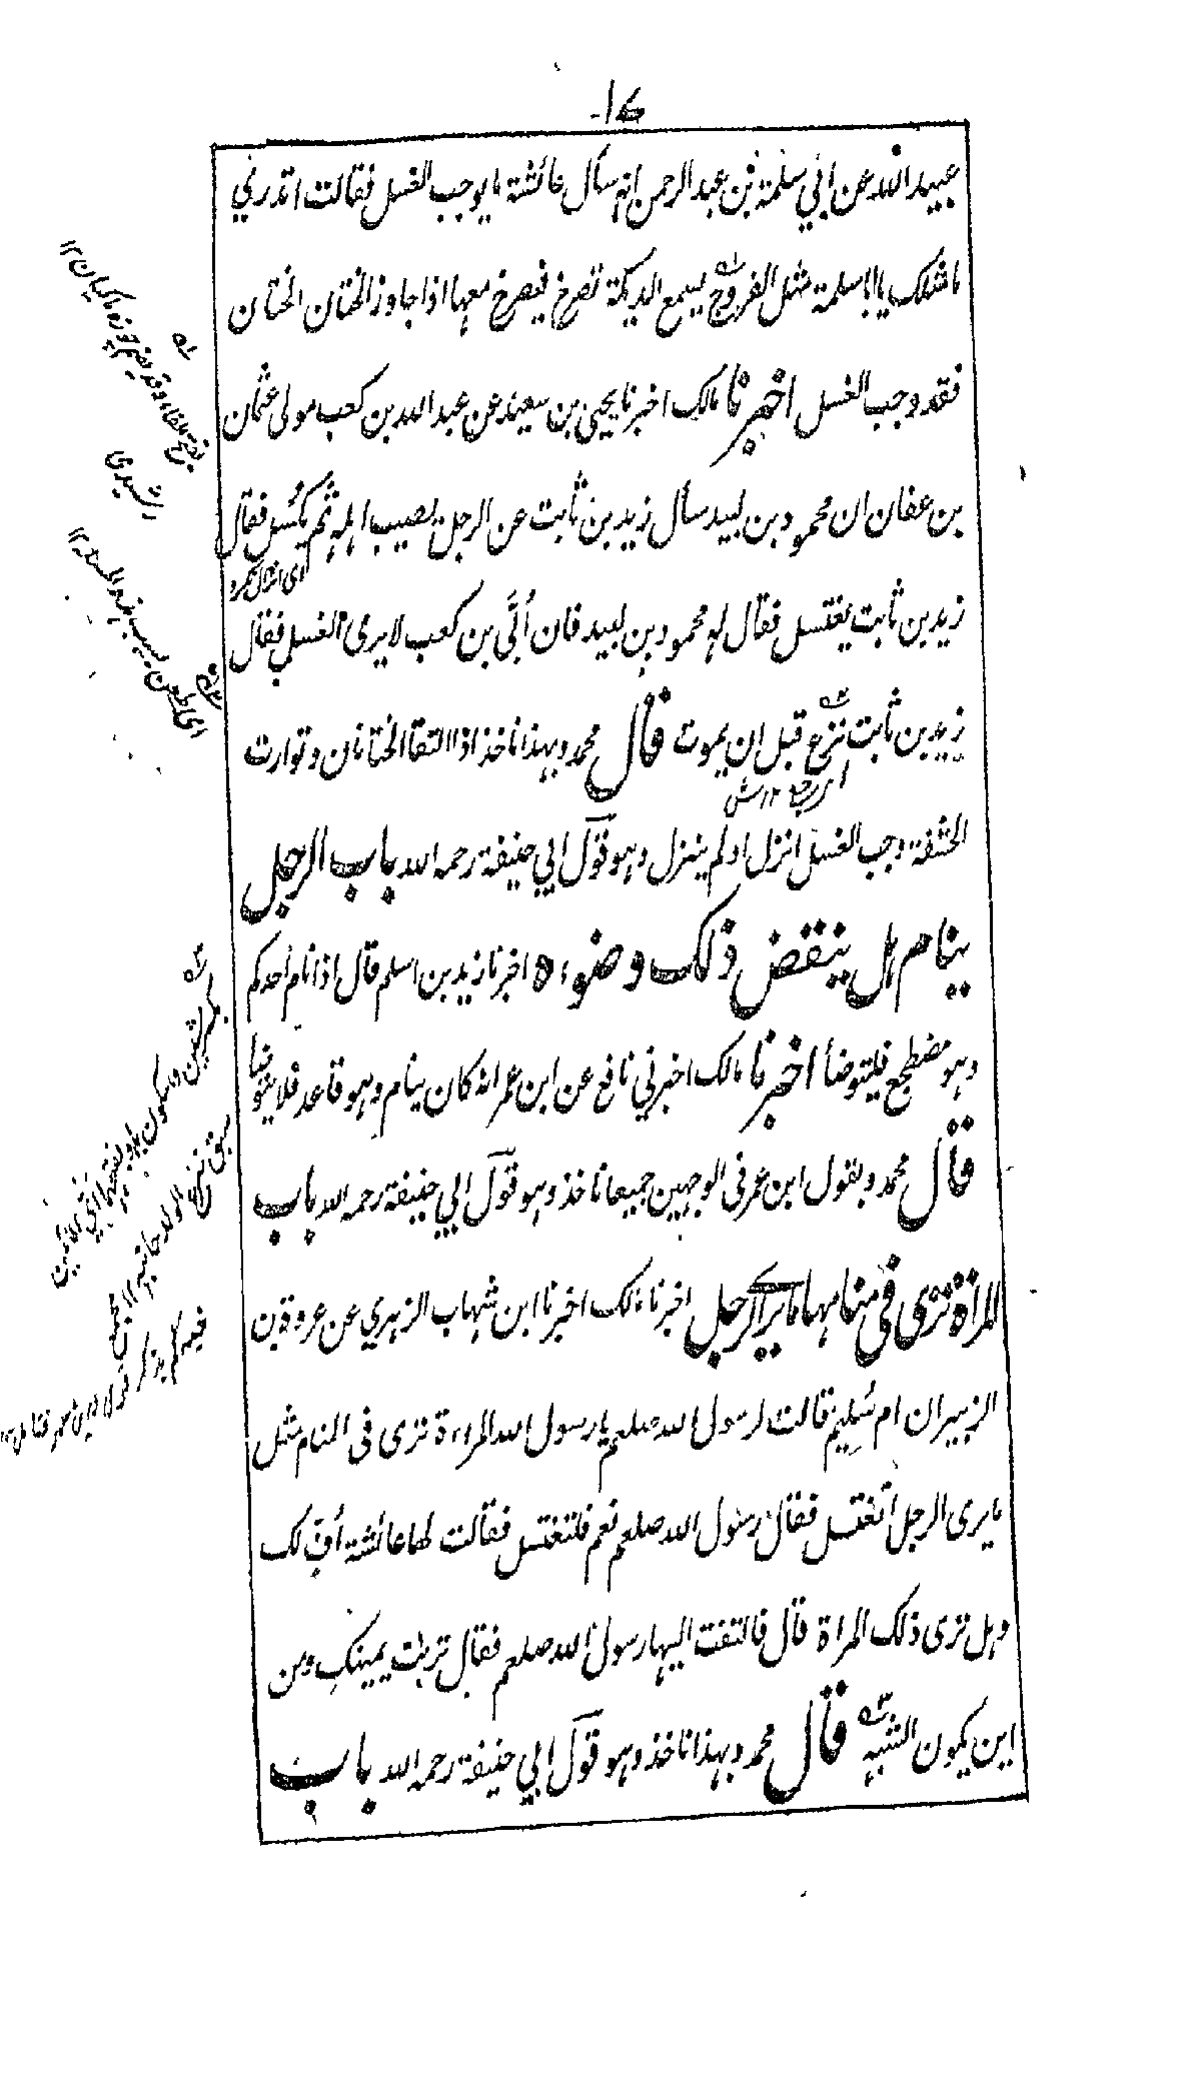 عبيد الله عن ابي سلمة بن عبد الرحمن انه سأل عائشة ما يوجب الغسل فقالت اتدري
ما مثلك يا ابا سلمة مثل الفروج يسمع الديكة تصرخ فيصرخ معها اذا جاوز الختان الختان
فقد وجب الغسل اخبرنا مالك اخبرنا يحيى بن سعيد عن عبد الله بن كعب مولى عثمان
بن عفان ان محمود بن لبيد سأل زيد بن ثابت عن الرجل يصيب اهله ثم يكسل فقال
زيد بن ثابت يغتسل فقال له محمود بن لبيد فان أبي بن كعب لا يرى الغسل فقال
زيد بن ثابت نزع قبل ان يموت قال محمد وبهذا ناخذ اذا التقا الختانان وتوارت
الحشفة وجب الغسل انزل او لم ينزل وهو قول ابي حنيفة رحمه الله باب الرجل
ينام هل ينقض ذلك وضوءه اخبرنا زيد بن اسلم قال اذا نام احدكم
وهو مضطجع فليتوضأ اخبرنا مالك اخبرني نافع عن ابن عمر انه كان ينام وهو قاعد فلا يتوضأ
قال محمد وبقول ابن عمر في الوجهين جميعا ناخذ وهو قول ابي حنيفة رحمه الله باب
المراة ترى في منامها ما يرى الرجل اخبرنا مالك اخبرنا ابن شهاب الزهري عن عروة بن
الزبير ان ام سليم قالت لرسول الله صلعم يا رسول الله المراءة ترى في المنام مثل
ما يرى الرجل أتغتسل فقال رسول الله صلعم نعم فلتغتسل فقالت لها عائشة أف لك
وهل ترى ذلك المراة قال فالتفت اليها رسول الله صلعم فقال تربت يمينك ومن
اين يكون الشبه قال محمد وبهذا ناخذ وهو قول ابي حنيفة رحمه الله باب